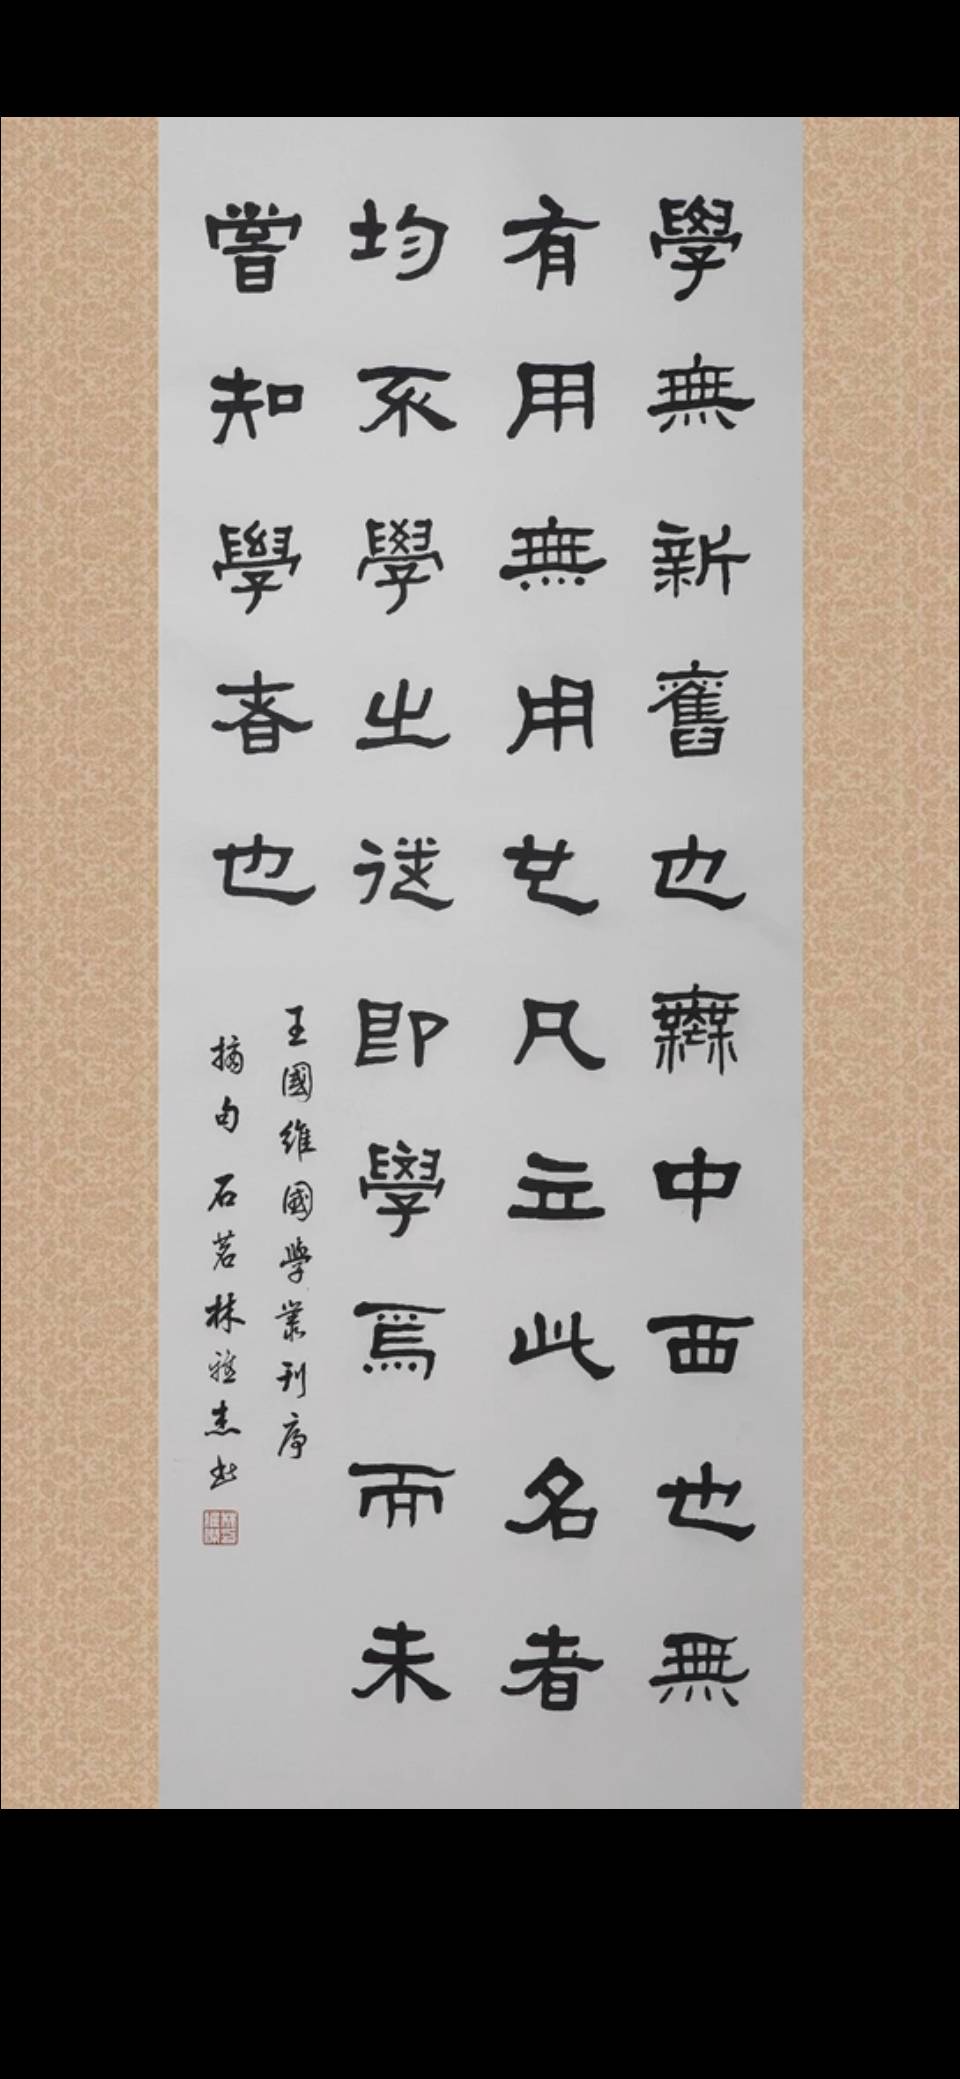 學無新舊也無中西也無
有用無用也凡立此名者
均不學之徒即學焉而未
嘗知學者也
王國維國學叢刊序
摘句石茗林雅杰书